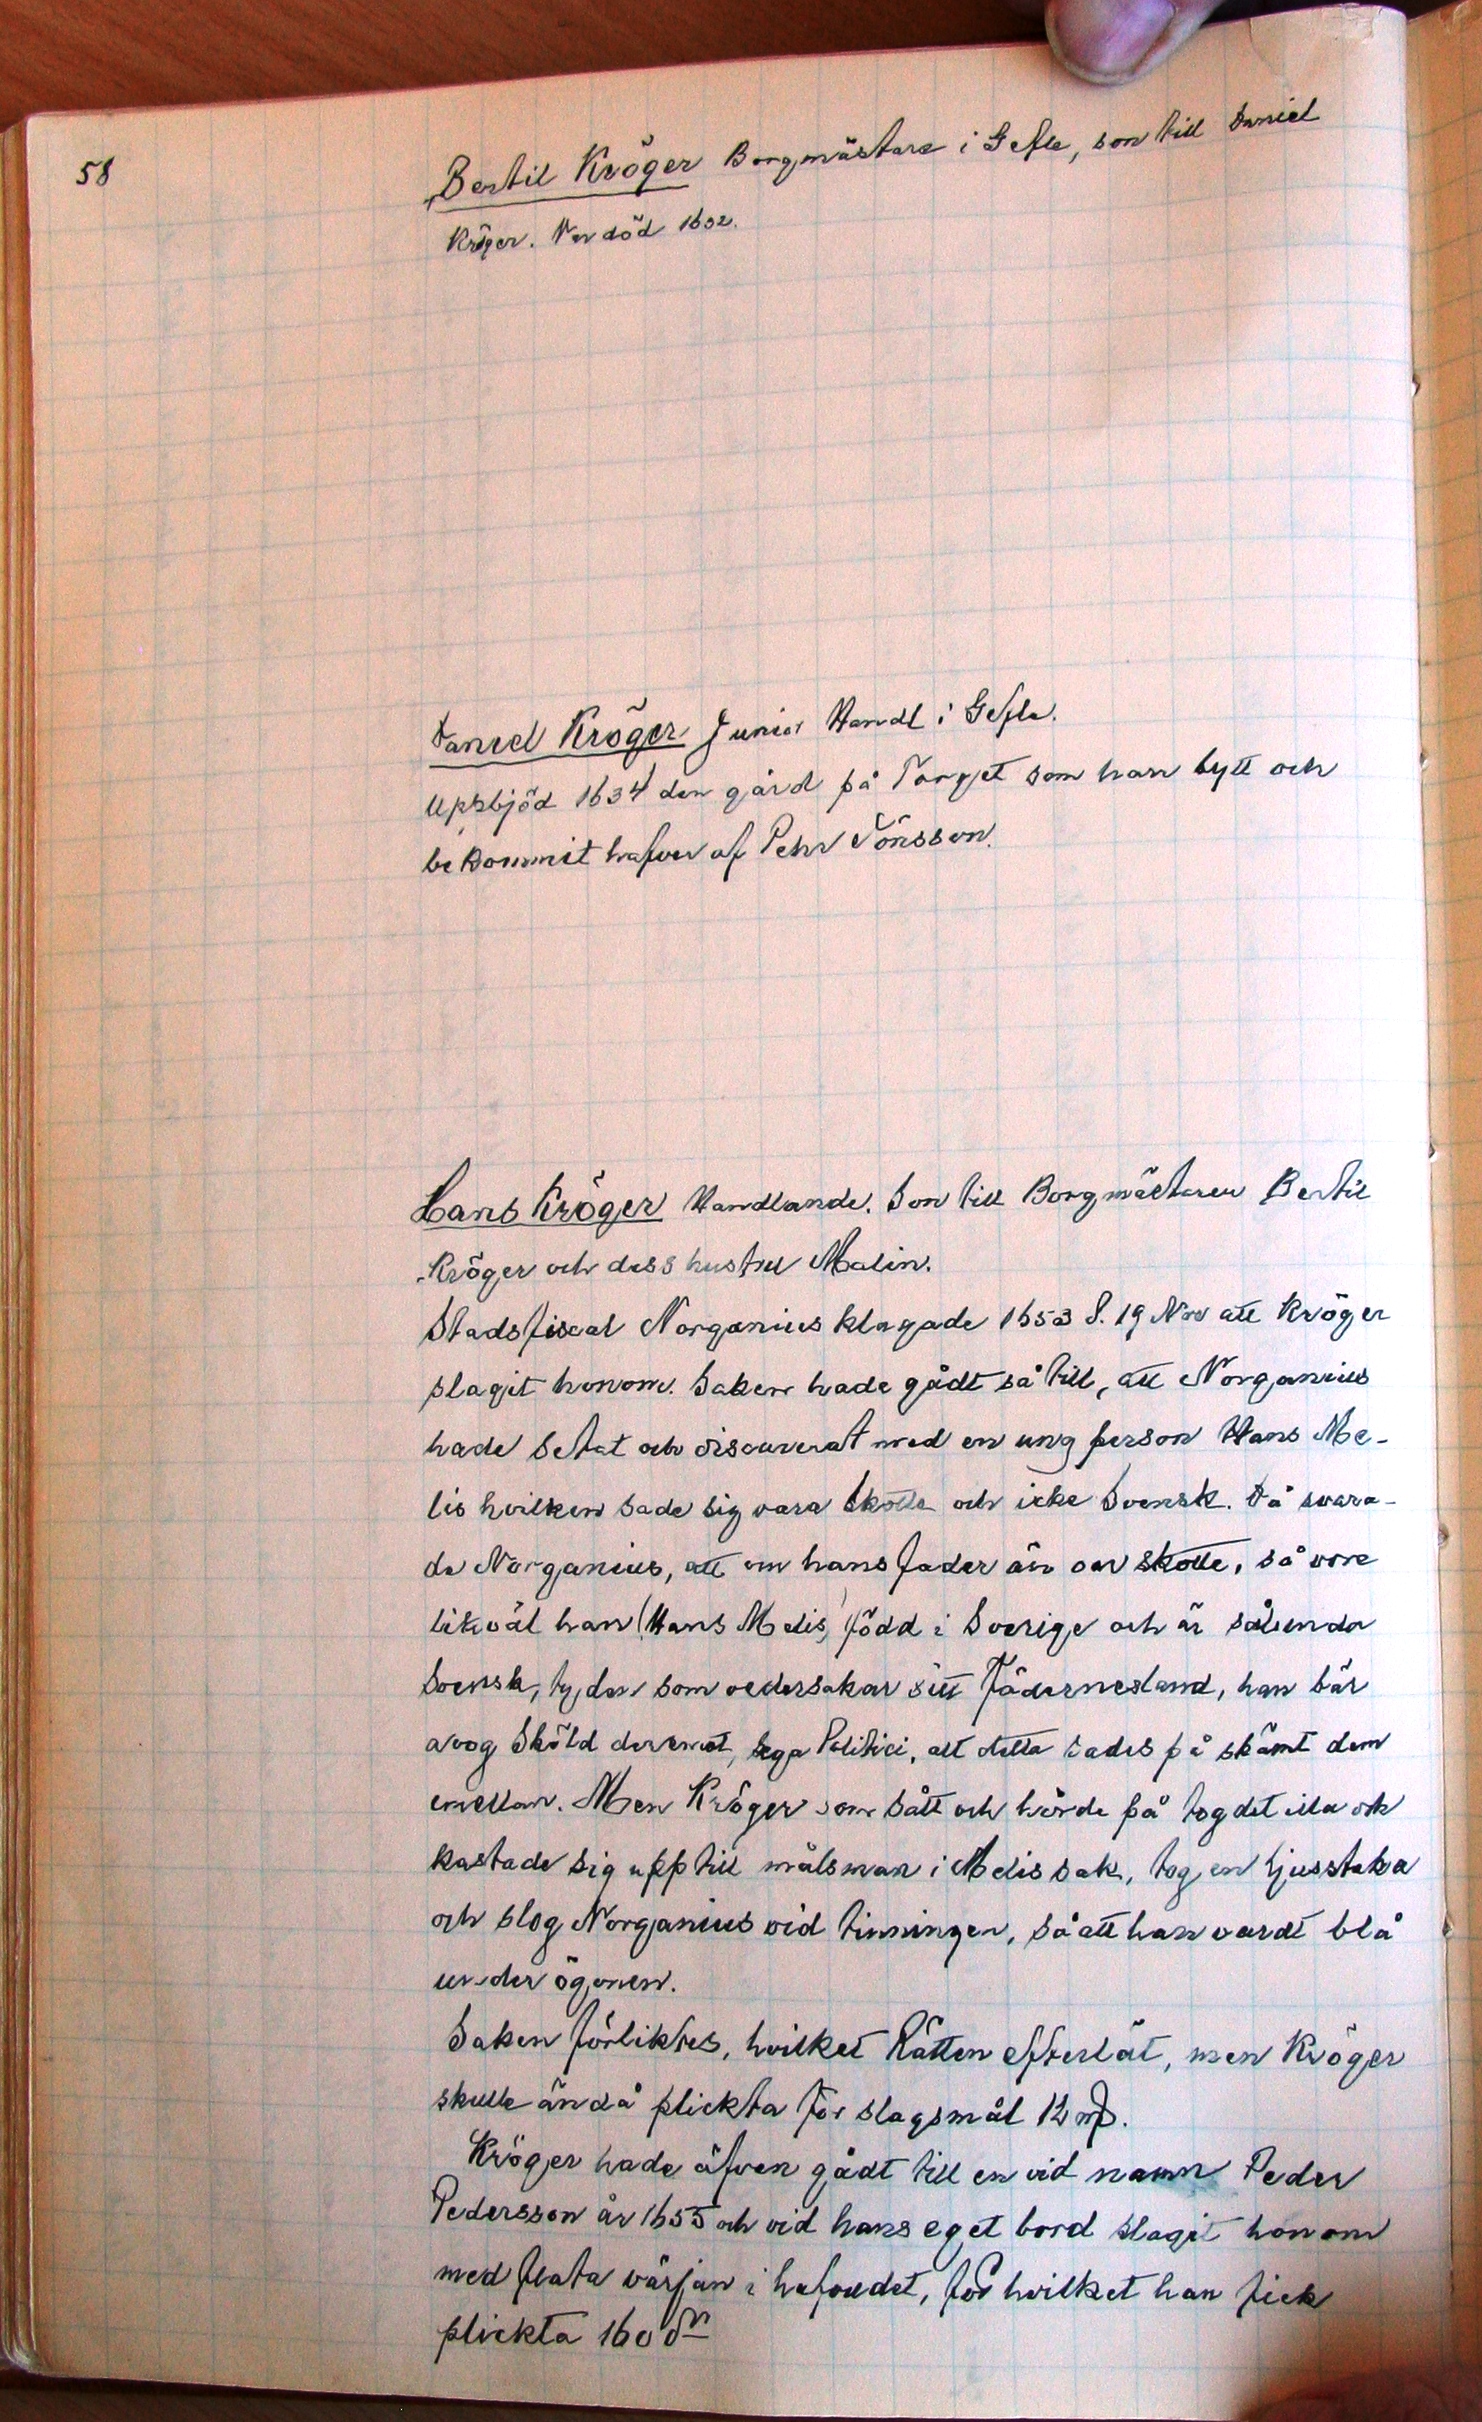 58
Bertil Kröger Borgmästare i Gefle, son till Daniel
Kröger. Var död 1632.
Daniel Kröger Junior Handl i Gefle.
Upbjöd 1634 den gård på Torget som han bytt och
bekommit hafver af Pehr Jönsson.
Hans Kröger Handlande. Son till Borgmästaren Bertil
Kröger och dess hustru Malin.
Stadsfiscal Norganius klagade 1653 d. 19 Nov att Kröger
slagit honom. Saken hade gådt så till, att Norganius
hade setat och discurerat med en ung person Hans Me-
lis hvilken sade sig vara Skotte och icke Svensk. Då svara-
de Norganius, att om hans fader än var skotte, så vore
likväl han (Hans Melis) född i Sverige och är sålunda
Svensk, ty den som vedersakar sitt Fädernesland, han bär
avog Sköld deremot, sega Politici, allt detta sades på skämt dem
emellan. Men Kröger som sått och hörde på tog det illa och
kastade sig upp till målsman i Melis sak, tog en ljusstaka
och slog Norganius vid tinningen, så att han vardt blå
under ögonen.
Saken förliktes, hvilket Rätten efterlät, men Kröger
skulle ändå plickta för slagsmål 12 mſ.
Kröger hade äfven gådt till en vid namn Peder
Pedersson år 1655 och vid hans eget bord slagit honom
med flata värjan i hafvudet, för hvilket han fick
plickta 160 dr